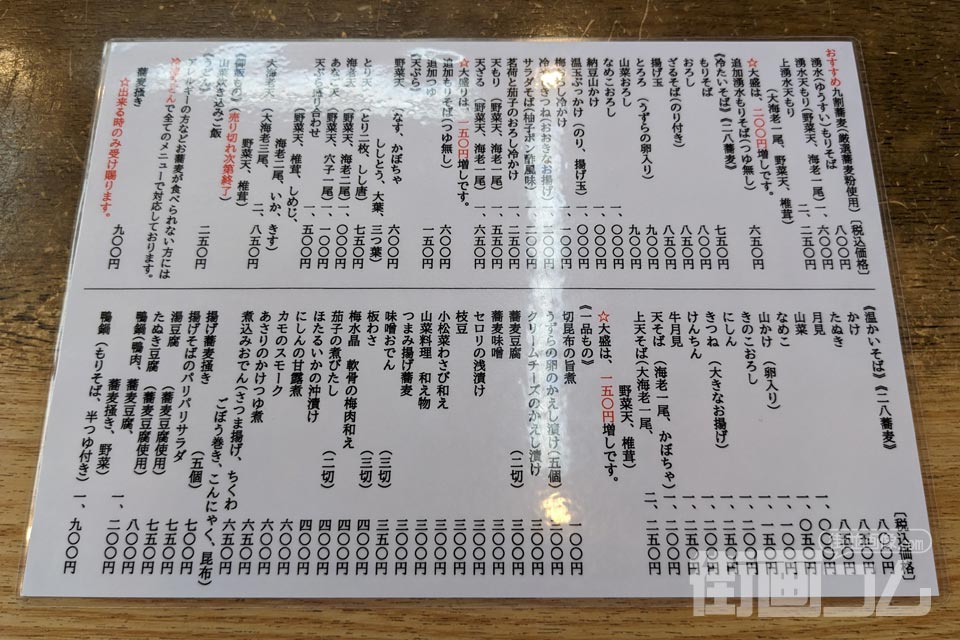 おすすめ九割蕎麦(厳選蕎麦粉使用)〔税込価格〕
湧水(ゆうすい)もりそば 八〇〇円
湧水天もり(野菜天、海老一尾)一、六〇〇円
上湧水天もり 二、二五〇円
(大海老一尾、野菜天、椎茸)
☆大盛は、二〇〇円増しです。
追加湧水もりそば(つゆ無し) 六五〇円
《冷たいそば》《二八蕎麦》
もりそば 七五〇円
おろし 八〇〇円
ざるそば(のり付き) 八五〇円
揚げ玉 八五〇円
とろろ(うずらの卵入り) 九〇〇円
山菜おろし 九〇〇円
なめこおろし 一、〇〇〇円
納豆山かけ 一、〇〇〇円
温玉ぶっかけ(のり、揚げ玉) 一、〇〇〇円
梅おろし冷かけ
冷やしきつね(おおきなお揚げ)
サラダそば(柚子ポン酢風味)
茗荷と茄子のおろし冷かけ 一、二五〇円
天もり(野菜天、海老一尾) 一、五五〇円
天ざる(野菜天、海老一尾) 一、六五〇円
☆大盛りは、一五〇円増しです。
追加もりそば(つゆ無し) 六〇〇円
追加つゆ 一五〇円
《天ぷら》
野菜天(なす、かぼちゃ 六〇〇円
ししとう、大葉、三つ葉)
とり天(とり二枚、しし唐) 七五〇円
海老天(野菜天、海老二尾) 一、〇〇〇円
あなご天(野菜天、穴子一尾) 一、一〇〇円
天ぷら盛り合わせ 一、五〇〇円
(野菜天、椎茸、しめじ、
海老二尾、いか、きす)
大海老天(大海老三尾、 二、八五〇円
野菜天、椎茸)
《御飯もの》(売り切れ次第終了)
山菜炊き込みご飯 二五〇円
《うどん》
アレルギーの方などお蕎麦が食べられない方には
冷凍うどんで全てのメニューで対応しております。
蕎麦掻き 九〇〇円
☆出来る時のみ受け賜ります。
《温かいそば》《二八蕎麦》 〔税込価格〕
かけ 八〇〇円
たぬき 八五〇円
月見 八五〇円
山菜
なめこ
山かけ(卵入り)
きのこおろし
にしん
きつね(大きなお揚げ)
けんちん
牛月見
天そば(海老一尾、かぼちゃ) 一、二五〇円
上天そば(大海老一尾、 二、一五〇円
野菜天、椎茸)
☆大盛は、一五〇円増しです。
《一品もの》
切昆布の旨煮 一〇〇円
うずらの卵のかえし漬け(五個)
クリームチーズのかえし漬け
蕎麦豆腐(二切) 三〇〇円
蕎麦味噌 三〇〇円
セロリの浅漬け 三〇〇円
枝豆 三〇〇円
小松菜わさび和え 三〇〇円
山菜料理 和え物 三〇〇円
つまみ揚げ蕎麦 三〇〇円
味噌おでん(三切) 三五〇円
板わさ(三切) 四〇〇円
梅水晶 軟骨の梅肉和え 四〇〇円
茄子の煮びたし(二切) 四〇〇円
ほたるいかの沖漬け 四〇〇円
にしんの甘露煮 六〇〇円
カモのスモーク 六〇〇円
あさりのかけつゆ煮 六五〇円
煮込みおでん(さつま揚げ、ちくわ 六五〇円
ごぼう巻き、こんにゃく、昆布)
揚げ蕎麦掻き(五個) 六五〇円
揚げそばのパリパリサラダ 七〇〇円
湯豆腐(蕎麦豆腐使用) 七五〇円
たぬき豆腐(蕎麦豆腐使用) 八〇〇円
鴨鍋(鴨肉、蕎麦豆腐、 一、二〇〇円
蕎麦掻き、野菜)
鴨鍋(もりそば、半つゆ付き) 一、九〇〇円
街画コム